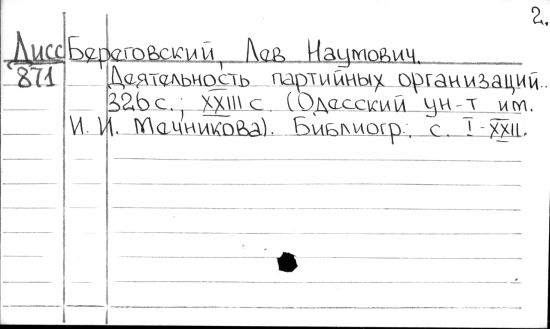 2.
Дисс Береговский, Лев Наумович.
871 Деятельность партийных организаций..
326 с.; XXIII с. (Одесский ун-т им.
И. И. Мечникова). Библиогр.: с. I-XXII.